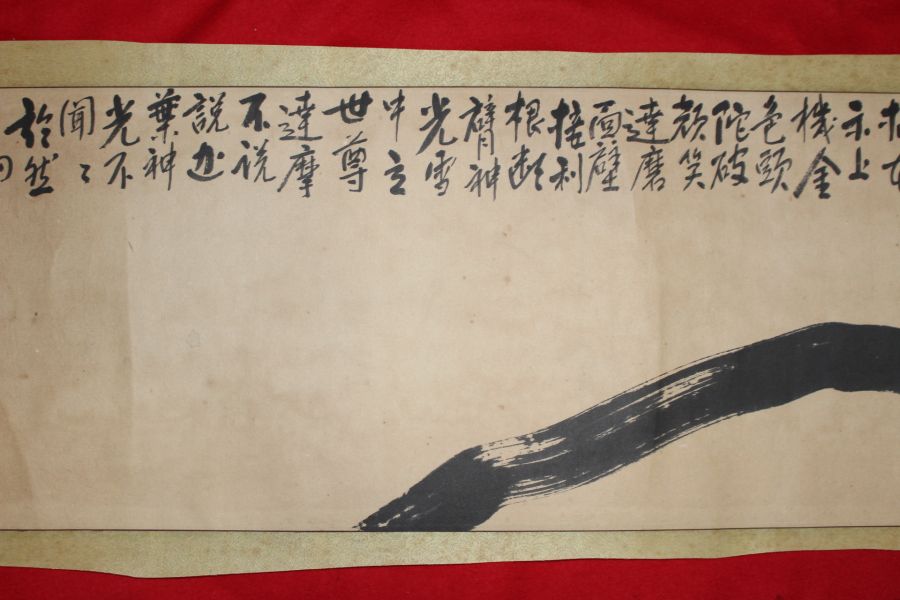 示上
機金
色頭
陀破
顔笑
達磨
面壁
接利
根断
臂神
光雪
中立
世尊
達摩
不説
説迦
葉神
光不
聞々
於然